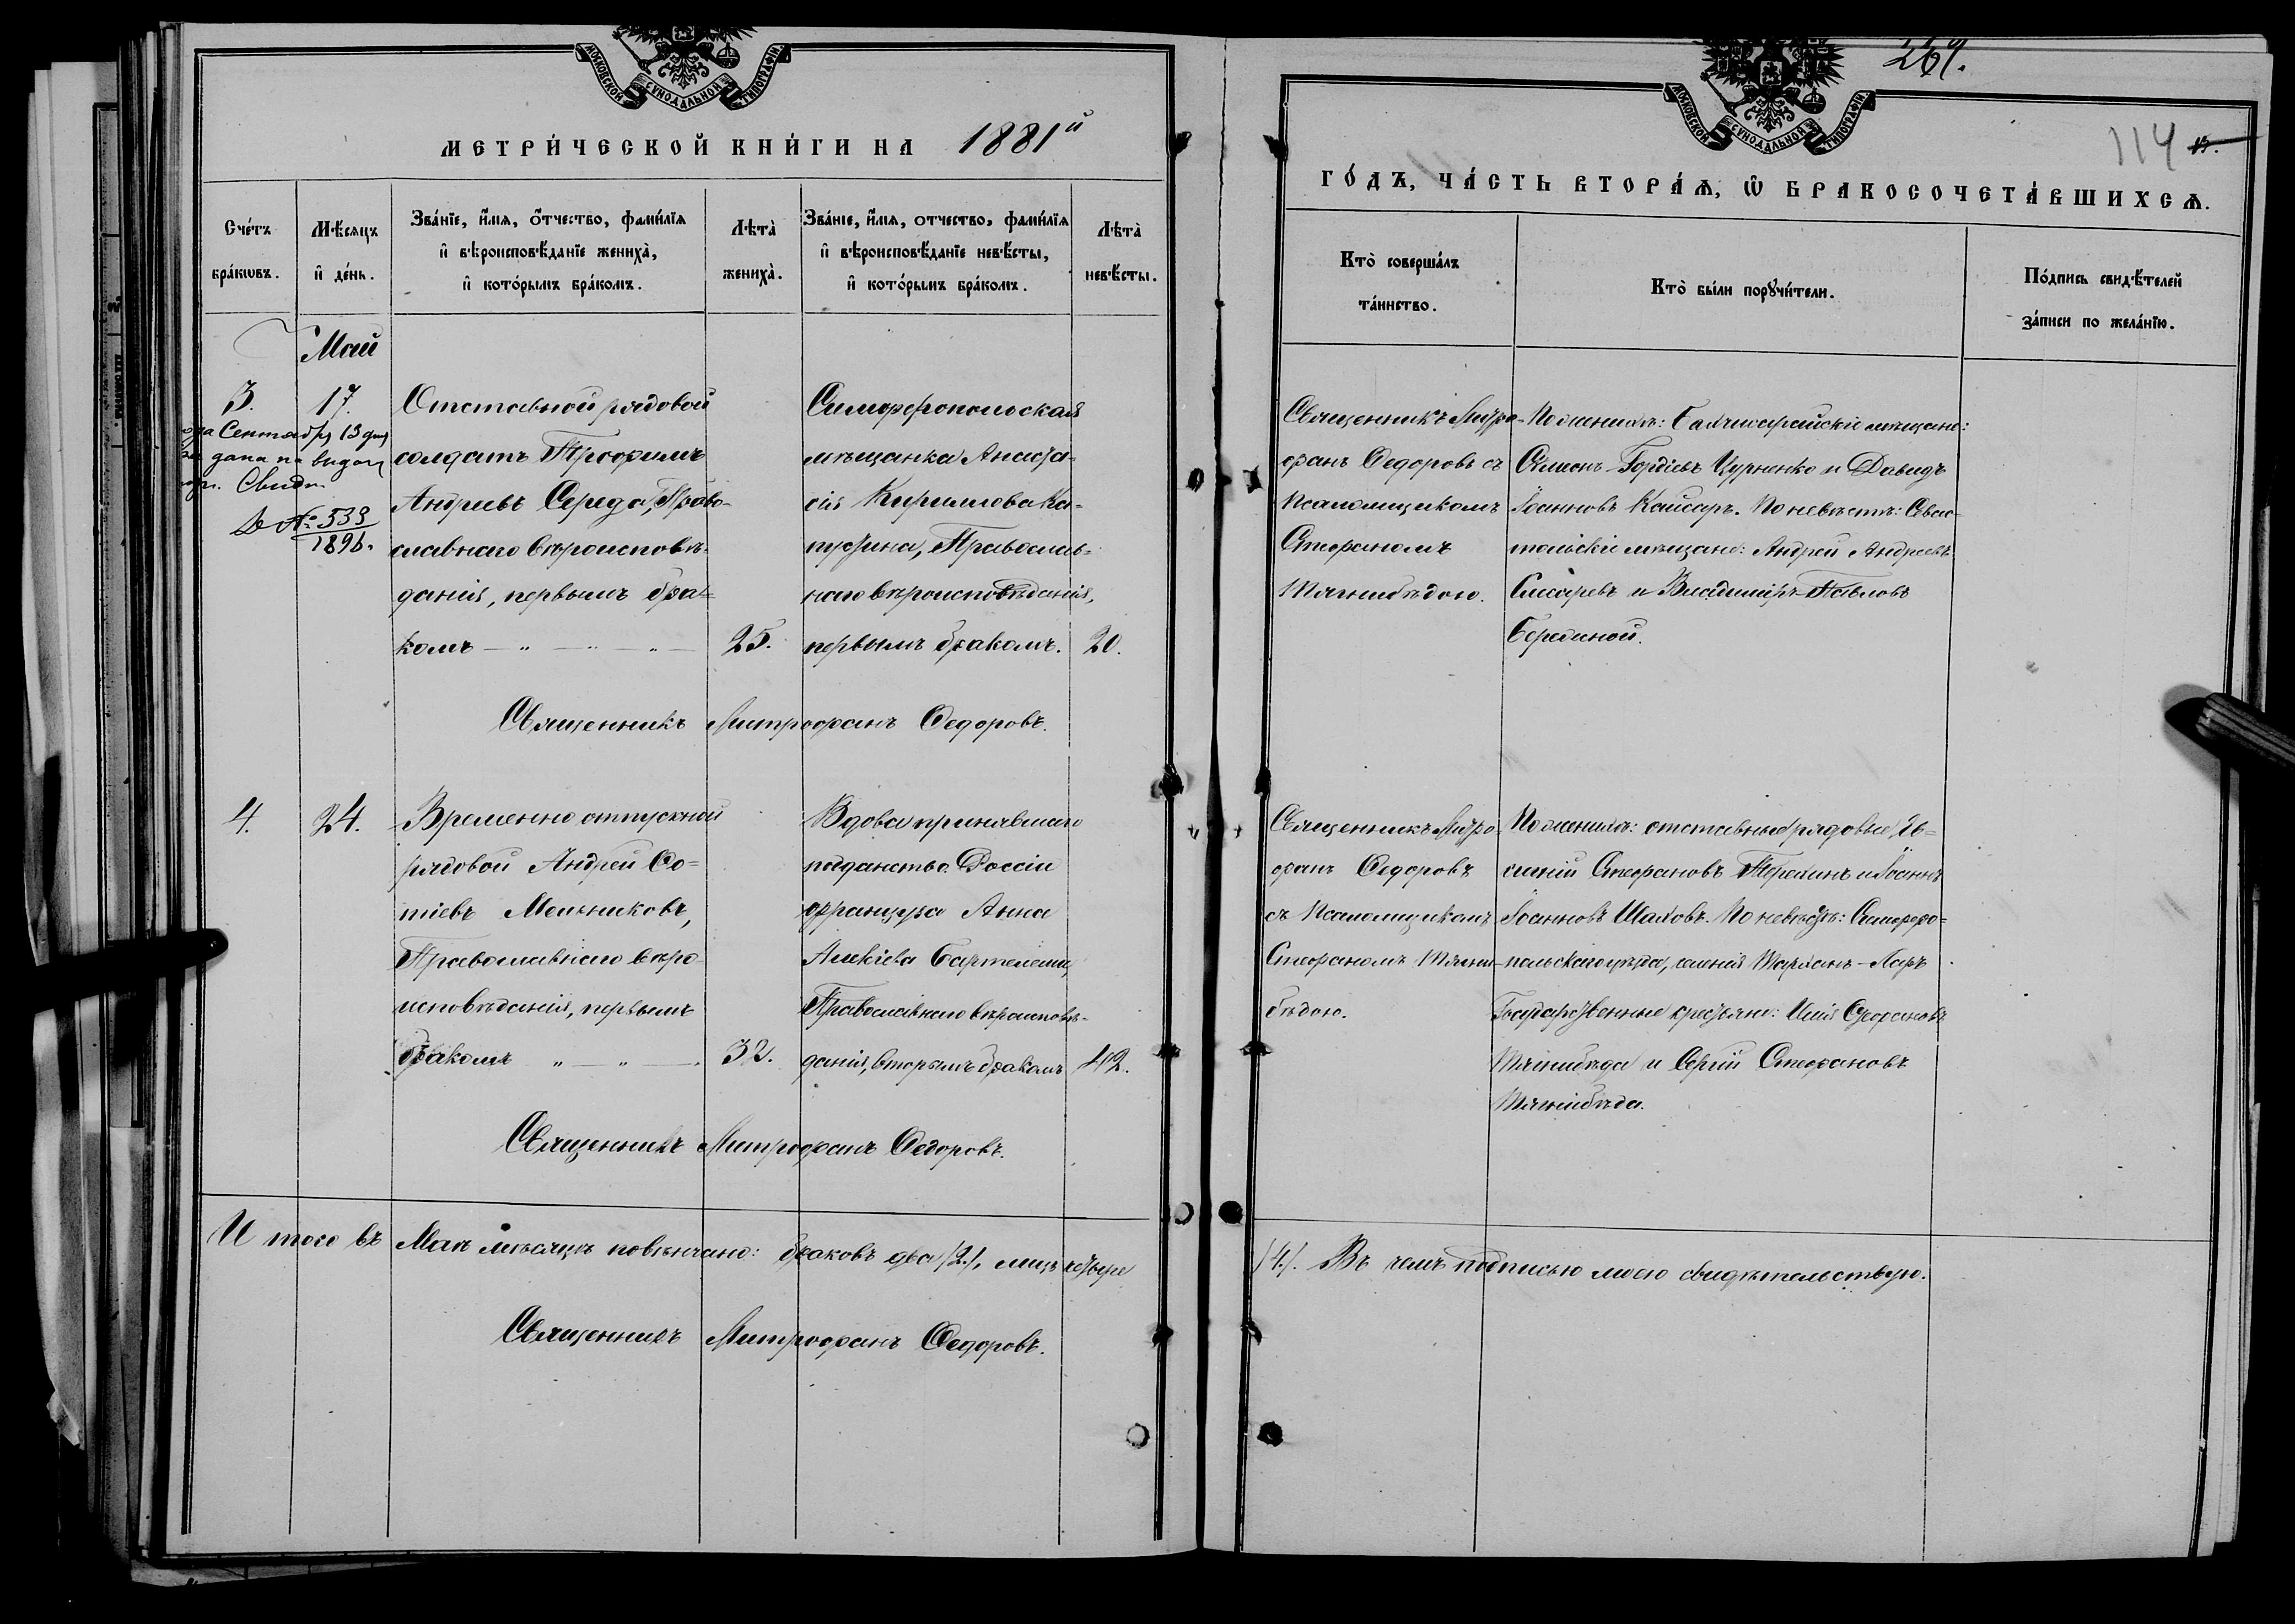 МОСКОВСКОЙ СѴНОДАЛЬНОЙ ТИПОГРАФІИ
МЕТРИ́ЧЕСКОЙ КНИ́ГИ НА 1881й
Сче́тъ бра́кѡвъ.
Мѣ́сяцъ и҆ де́нь.
Зва́нїе, и҆́мя, ѻ҆́тчество, фами́лїя
и҆ вѣроисповѣ́данїе жениха̀,
и҆ кото́рымъ бра́комъ.
Лѣта̀ жениха̀.
Зва́нїе, и҆́мя, отчество, фами́лїя
и҆ вѣроисповѣ́данїе невѣ́сты,
и҆ кото́рымъ бра́комъ.
Лѣта̀ невѣ́сты.
Май
3.
17.
Сентября 13 дня
дана на выдачу
Свид.
за № 533
1896.
Отставной рядовой
солдатъ Трофимъ
Андреевъ Середа, Право-
славнаго вѣроисповѣ-
данія, первымъ бра-
комъ — „ — „ — „ —
25.
Симферопольская
мѣщанка Анаста-
сія Кириллова Ка-
пустина, Православ-
наго вѣроисповѣданія,
первымъ бракомъ.
20.
Священникъ Митрофанъ Федоровъ.
4.
24.
Временно отпускной
рядовой Андрей Фо-
тіевъ Мельниковъ,
Православнаго вѣро-
исповѣданія, первымъ
бракомъ „ — „ — .
32.
Вдова принявшаго
подданство Россіи
француза Анна
Алексіева Бартелеми,
Православнаго вѣроисповѣ-
данія, вторымъ бракомъ
42.
Священникъ Митрофанъ Федоровъ.
И того въ Маѣ мѣсяцѣ повѣнчано: браковъ два /2/, лицъ четыре
Священникъ Митрофанъ Федоровъ.
264.
МОСКОВСКОЙ СѴНОДАЛЬНОЙ ТИПОГРАФІИ
114
ГО́ДЪ, ЧА́СТЬ ВТОРА́Ѧ, Ѡ҆ БРАКОСОЧЕТА́ВШИХСѦ.
Кто̀ соверша́лъ
та́инство.
Кто̀ бы́ли порꙋчи́тели.
По́дпись свидѣ́телей
за́писи по жела́нїю.
Священникъ Митро-
фанъ Федоровъ съ
Псаломщикомъ
Стефаномъ
Тягнибѣдою.
По женихѣ: Бахчисарайскіе мѣщане:
Симонъ Гордіевъ Цурненко и Давидъ
Іоанновъ Кайсаръ. По невѣстѣ: Севас-
топольскіе мѣщане: Андрей Андреевъ
Снисаревъ и Владиміръ Павловъ
Священникъ Митро-
фанъ Федоровъ
съ Псаломщикомъ
Стефаномъ Тягни-
бѣдою.
По женихѣ: отставные рядовые, Ев-
симій Стефановъ Терехинъ и Іоаннъ
Іоанновъ Шаховъ. По невѣстѣ: Симферо-
польскаго уѣзда, селенія Тарханъ-Ларъ
Государственные крестьяне: Илія Стефановъ
Тягнибѣда и Сергій Стефановъ
Тягнибѣда.
/4/. Въ чемъ подписью моею свидѣтельствую.